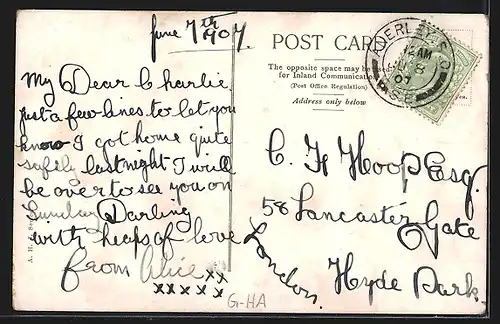 June 7th 1907
My Dear Charlie
just a few lines to let you
know I got home quite
safely last night I will
be over to see you on
Sunday Darling
with heaps of love
from Alice xx
xxxxx
POST CARD
The opposite space may be used
for Inland Communication
(Post Office Regulation)
Address only below
AM
8
07
C. H. Hoop Esq.
58 Lancaster Gate
Hyde Park
London.
G-HA